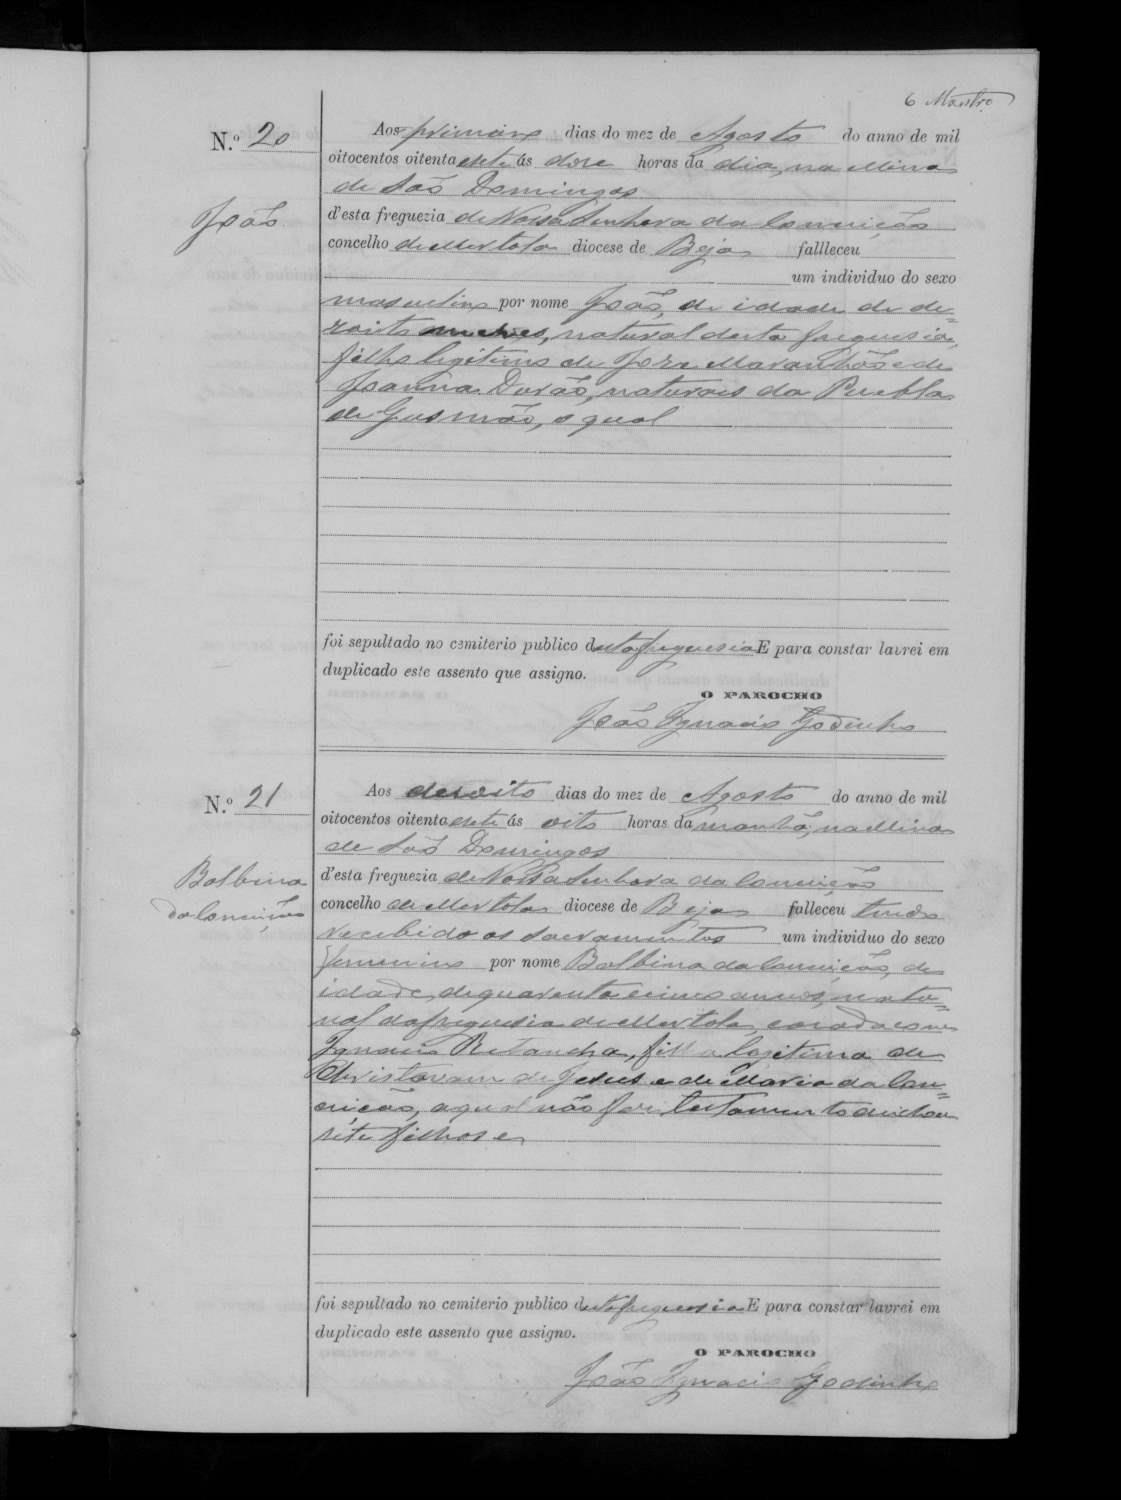 6 Mestre
N.º 20
João
Aos primeiro dias do mez de Agosto do anno de mil
oitocentos oitenta e sete ás doze horas da dia, na Mina
de São Domingos
d'esta freguezia de Nossa Senhora da Conceição
concelho de Mertola diocese de Beja fallleceu
um individuo do sexo
masculino por nome João, de idade de de=
zoito mezes, natural desta freguesia,
filho legitimo de José Maranhão e de
Joanna Durão, naturaes da Puebla
de Gusmão, o qual
foi sepultado no cemiterio publico desta freguesia E para constar lavrei em
duplicado este assento que assigno.
O PAROCHO
João Ignacio Godinho
N.º 21
Balbina
da Conceição
Aos desoito dias do mez de Agosto do anno de mil
oitocentos oitenta e sete ás oito horas da manhã, na Mina
de São Domingos
d'esta freguezia de Nossa Senhora da Conceição
concelho de Mertola diocese de Beja falleceu tendo
recebido os Sacramentos um individuo do sexo
femenino por nome Balbina da Conceição, de
idade de quarenta e cinco annos, natu=
ral da freguesia de Mertola, casada com
Ignacio filha legitima de
Christovam de Jesus e de Maria da Con=
ceição, a qual não fez testamento deichou
sete filhos e
foi sepultado no cemiterio publico desta freguesia E para constar lavrei em
duplicado este assento que assigno.
O PAROCHO
João Ignacio Godinho